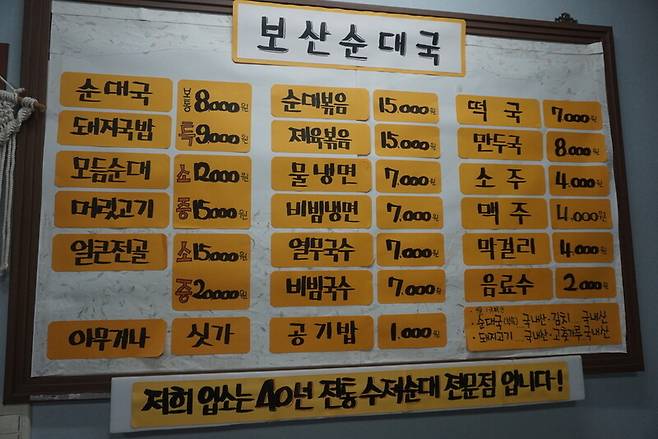 보산순대국
순대국 보통 8.000원
돼지국밥 특 9.000원
모듬순대 소 12.000원
머릿고기 중 15.000원
얼큰전골 소 15.000원
중 20.000원
아무거나 싯가
순대볶음 15.000원
제육볶음 15.000원
물냉면 7.000원
비빔냉면 7.000원
열무국수 7.000원
비빔국수 7.000원
공기밥 1.000원
떡국 7.000원
만두국 8.000원
소주 4.000원
맥주 4.000원
막걸리 4.000원
음료수 2.000원
국내산·김치 국내산
돼지고기 국내산·고춧가루 국내산
저희 업소는 40년 전통 수제순대 전문점 입니다!